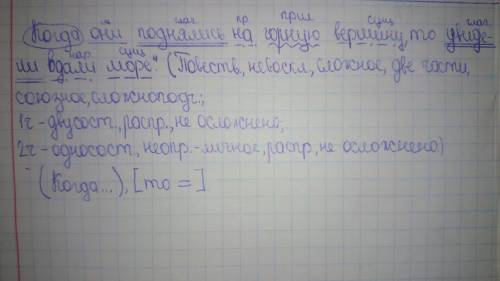 гл. пр. прил сущ гл.
Когда они поднялись на горную вершину, то увиде-
нар. сущ
ли вдали море. (Повеств, невоскл, сложное, две части,
союзное, сложноподч.;
1ч - двусост., распр., не осложнено;
2ч - односост, неопр.-личное, распр, не осложнено)
(Когда...), [то =]